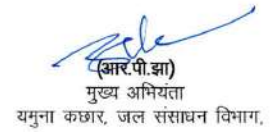 (आर.पी.झा)
मुख्य अभियंता
यमुना कछार, जल संसाधन विभाग,